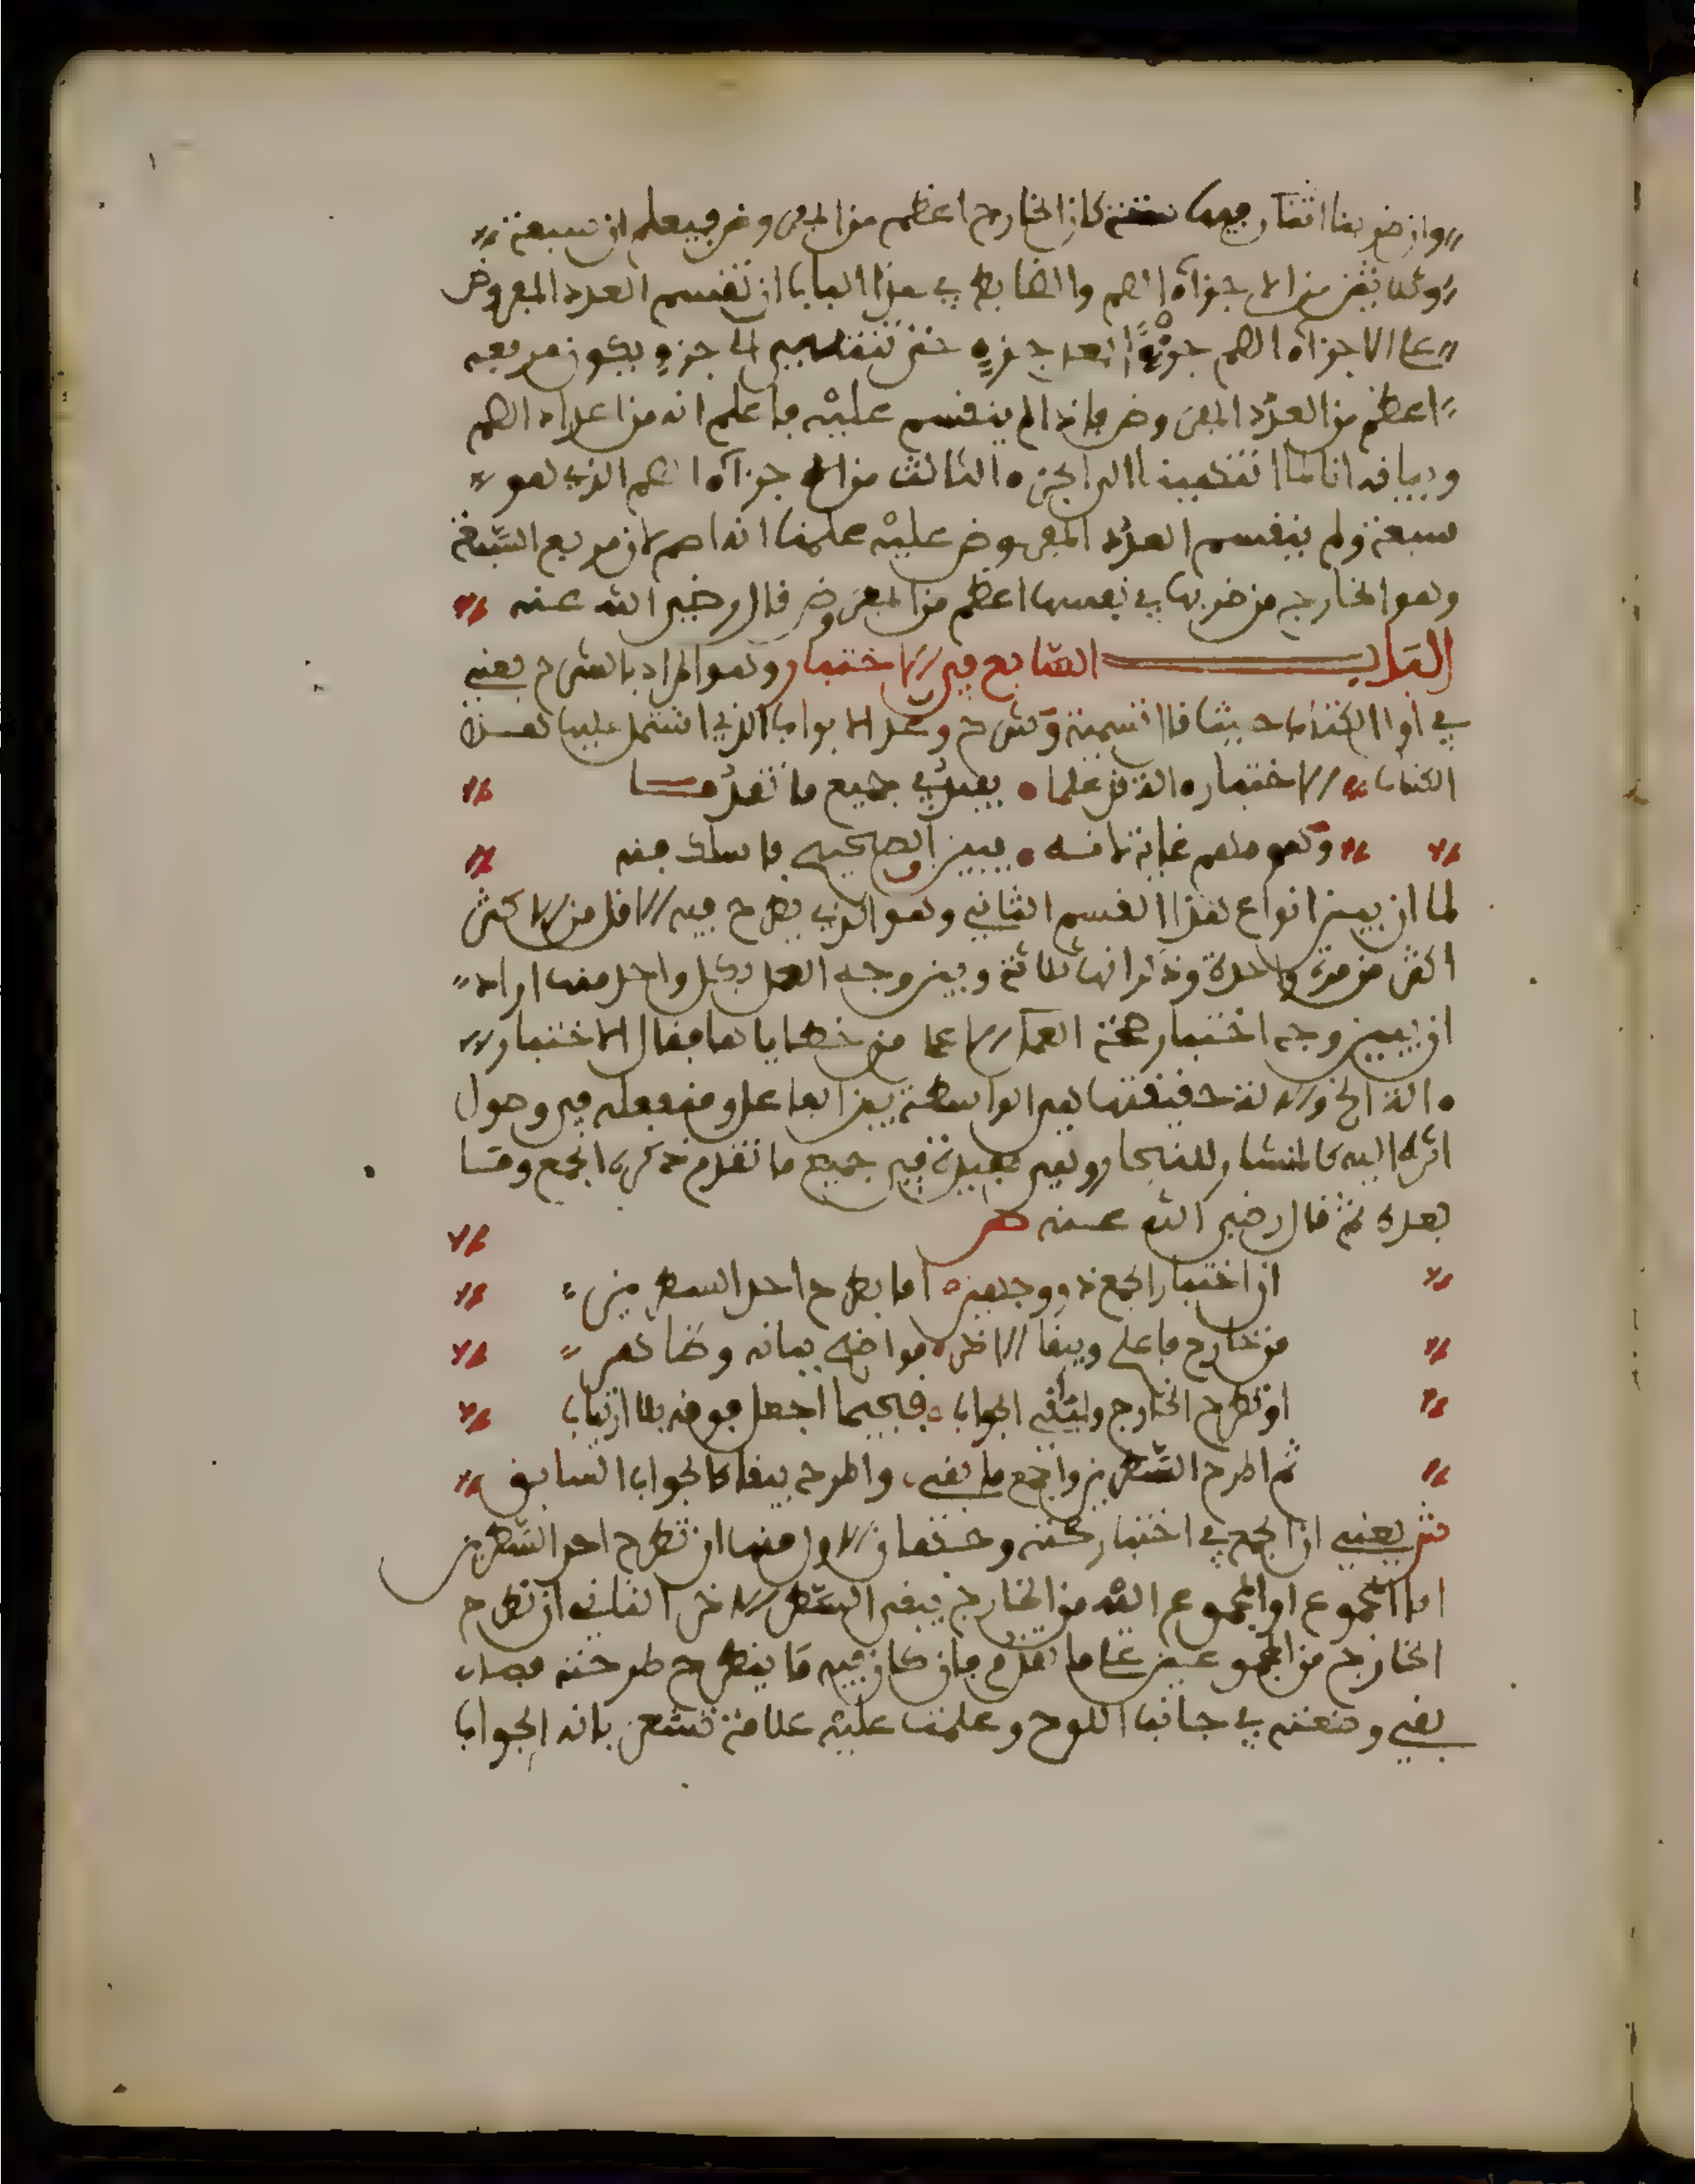 وان ضربنا اثنان فيها كان الخارج اعظم من المفروض فيعلم ان سبعة
وثلاثين من الاجزاء الصم والضابط في هذا الباب ان تقسم العدد المفروض
على الاجزاء الصم جزءا بعد جزء حتى تنتهي الى جزء يكون مربعه
اعظم من العدد المفروض فاذا لم ينقسم عليه فاعلم انه من اعداد الصم
وبيانه انا لما انتهينا الى الجزء الثالث من الاجزاء الصم الذي هو
سبعة ولم ينقسم العدد المفروض عليه علمنا انه اصم لان مربع السبعة
وهو الخارج من ضربها في نفسها اعظم من المفروض قال رضي الله عنه
الباب السابع في الاختبار وهو المراد بالشرح يعني
في اول الكتاب حيث قال قسمة وشرح وعد الابواب الذي اشتمل عليها هذا
الكتاب الاختبار ءالة فرعلما يفيد في جميع ما تقدما
وهو مهم غاية لانه يبين الصحيح فاسلك منه
لما ان بين انواع هذا القسم الثاني وهو الذي يطرح فيه الاقل من الاكثر
اكثر من مرة واحدة وذكر انها ثلاثة وبين وجه العمل بكل واحد منها اراد
ان يبين وجه اختبار صحة العمل الاعمال من خطاياها فقال الاختبار
ءالة الخ والالة حقيقتها هي الواسطة بين الفاعل ومنفعله في وصول
اثره اليه كالمنشار للنجار وهي مفيدة في جميع ما تقدم ذكره الجمع وما
بعده ثم قال رضي الله عنه ص
ان اختبار الجمع ذو وجهين اما بطرح احد السطرين
من خارج فاعلم ويبقا الاخر فواضح بيانه وظاهر
او تطرح الخارج ولباقي الجواب فحيثما اجعل فوقه بلا ارتياب
ثم اطرح السطرين واجمع ما بقي واطرح يبقا كالجواب السابق
ش يعني ان الجمع في اختبار صحته وجهان الاول منهما ان تطرح احد السطرين
اما المجموع او المجموع اليه من الخارج يبقى السطر الاخر الثاني ان تطرح
الخارج من المجموعين على ما تقدم فان كان فيه ما يطرح طرحته فما
بقي وضعته في جانب اللوح وعلمت عليه علامة تشعر بانه الجواب